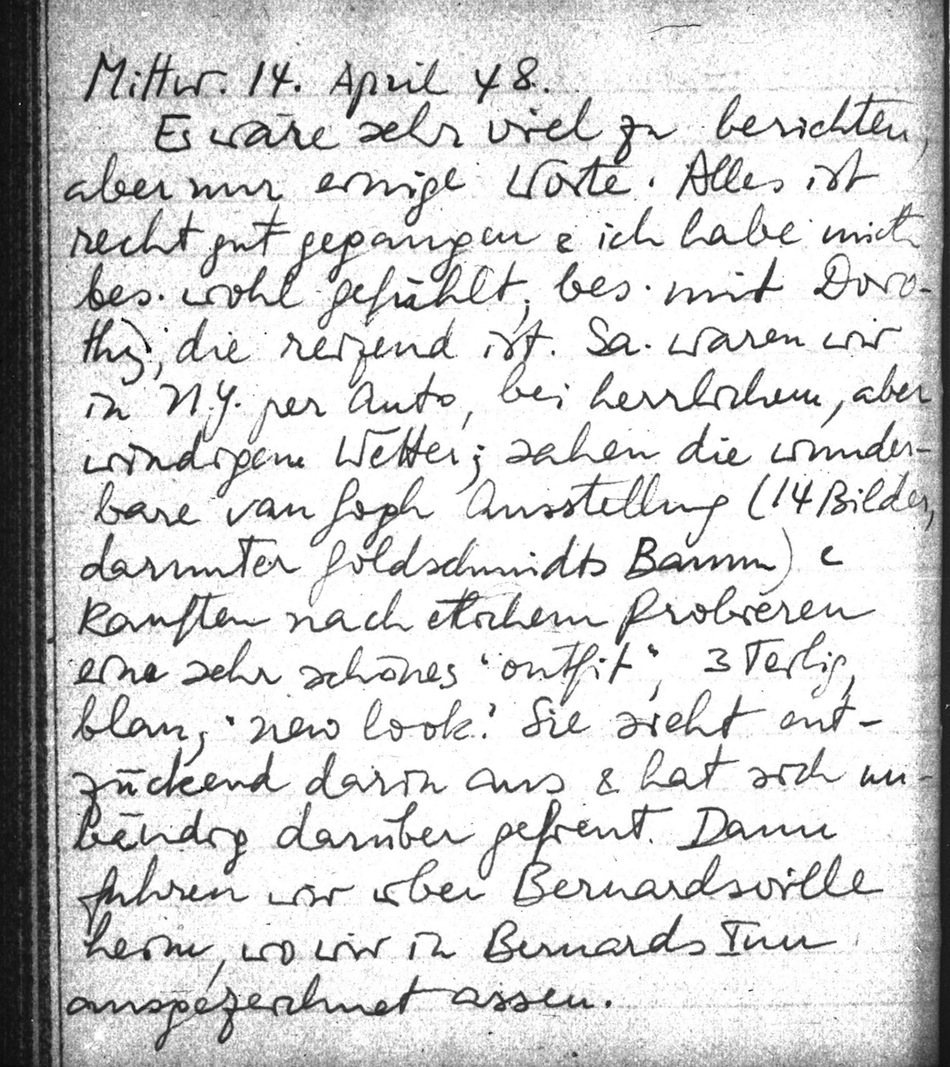 Mittw. 14. April 48.
Es wäre sehr viel zu berichten,
aber nur einige Worte. Alles ist
recht gut gegangen & ich habe mich
bes. wohl gefühlt, bes. mit Doro-
thy, die reizend ist. Sa. waren wir
in N.Y. per Auto, bei herrlichem, aber
windigem Wetter; sahen die wunder-
bare van Gogh Ausstellung (14 Bilder,
darunter Goldschmidts Baum) &
kauften nach etlichem Probieren
eine sehr schönes 'outfit', 3 Teilig,
blau, 'new look'. Sie sieht ent-
zückend darin aus & hat sich un-
bändig darüber gefreut. Dann
fuhren wir über Bernardsville
heim, wo wir in Bernards Inn
ausgezeichnet assen.